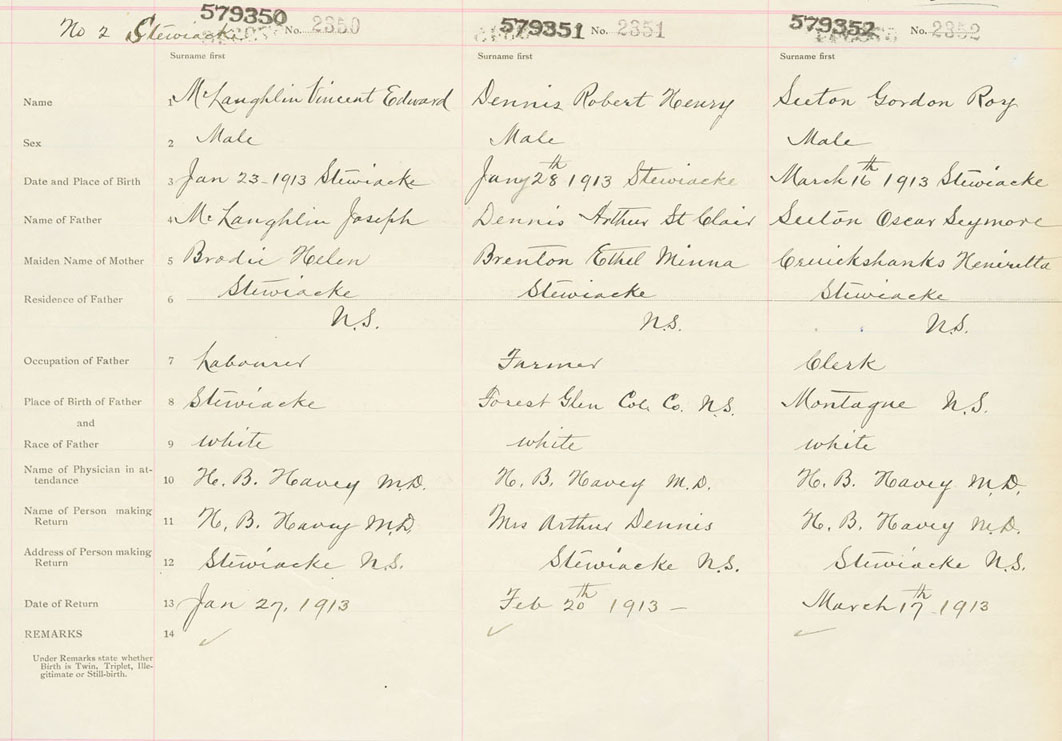 No 2 Stewiacke 579350 No. 2350 579351 No. 2351 579352 No. 2352
Surname first Surname first Surname first
Name 1 McLaughlin Vincent Edward Dennis Robert Henry Seeton Gordon Roy
Sex 2 Male Male Male
Date and Place of Birth 3 Jan 23-1913 Stewiacke Jany 28th 1913 Stewiacke March 16th 1913 Stewiacke
Name of Father 4 McLaughlin Joseph Dennis Arthur St Clair Seeton Oscar Seymore
Maiden Name of Mother 5 Brodie Helen Brenton Ethel Minna Cruickshanks Heniretta
Residence of Father 6 Stewiacke Stewiacke Stewiacke
N.S. N.S. N.S.
Occupation of Father 7 Labourer Farmer Clerk
Place of Birth of Father 8 Stewiacke Forest Glen Col. Co. N.S. Montague N.S.
and
Race of Father 9 white white white
Name of Physician in at-
tendance 10 H. B. Havey M.D. H. B. Havey M.D. H. B. Havey M.D.
Name of Person making
Return 11 H. B. Havey M.D. Mrs Arthur Dennis H. B. Havey M.D.
Address of Person making
Return 12 Stewiacke N.S. Stewiacke N.S. Stewiacke N.S.
Date of Return 13 Jan 27, 1913 Feb 20th 1913 – March 17th 1913
REMARKS 14
Under Remarks state whether
Birth is Twin, Triplet, Ille-
gitimate or Still-birth.